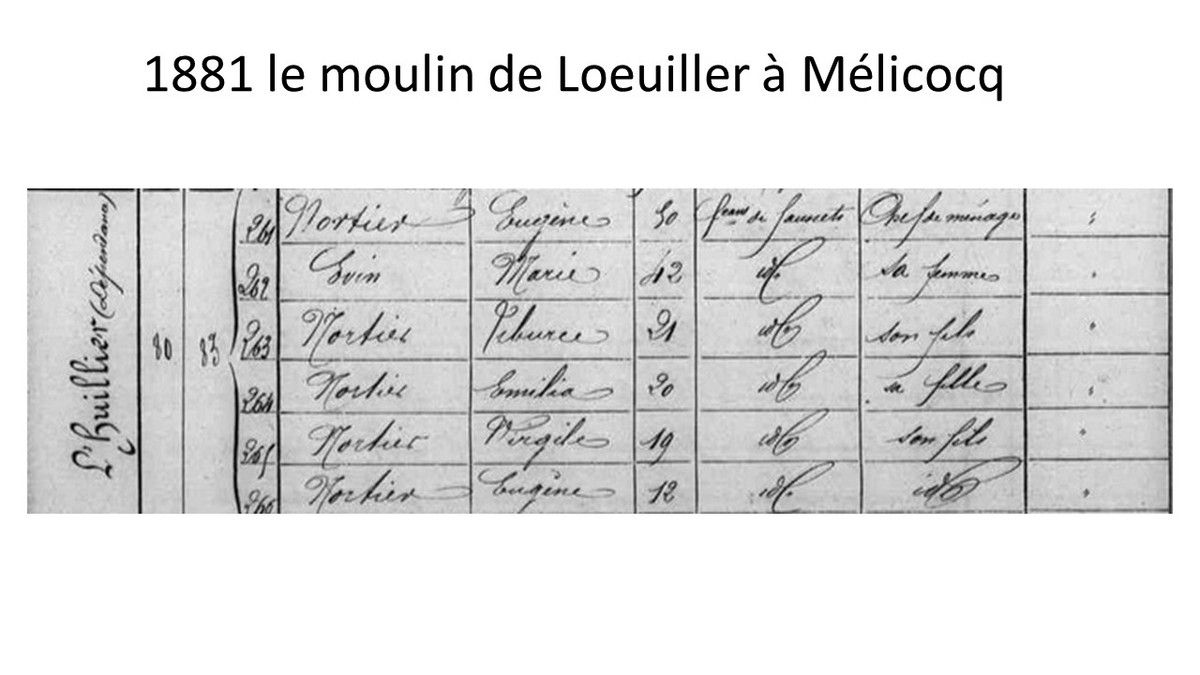 1881 le moulin de Loeuiller à Mélicocq
L'huillier (Dépendance)
80 83
261 Mortier Eugène 50 de Chef de ménage
262 Marie 42 id. sa femme
263 Mortier Tiburce 21 id. son fils
264 Mortier Emilia 20 id. sa fille
265 Mortier Virgile 19 id. son fils
266 Mortier Eugène 12 id. id.